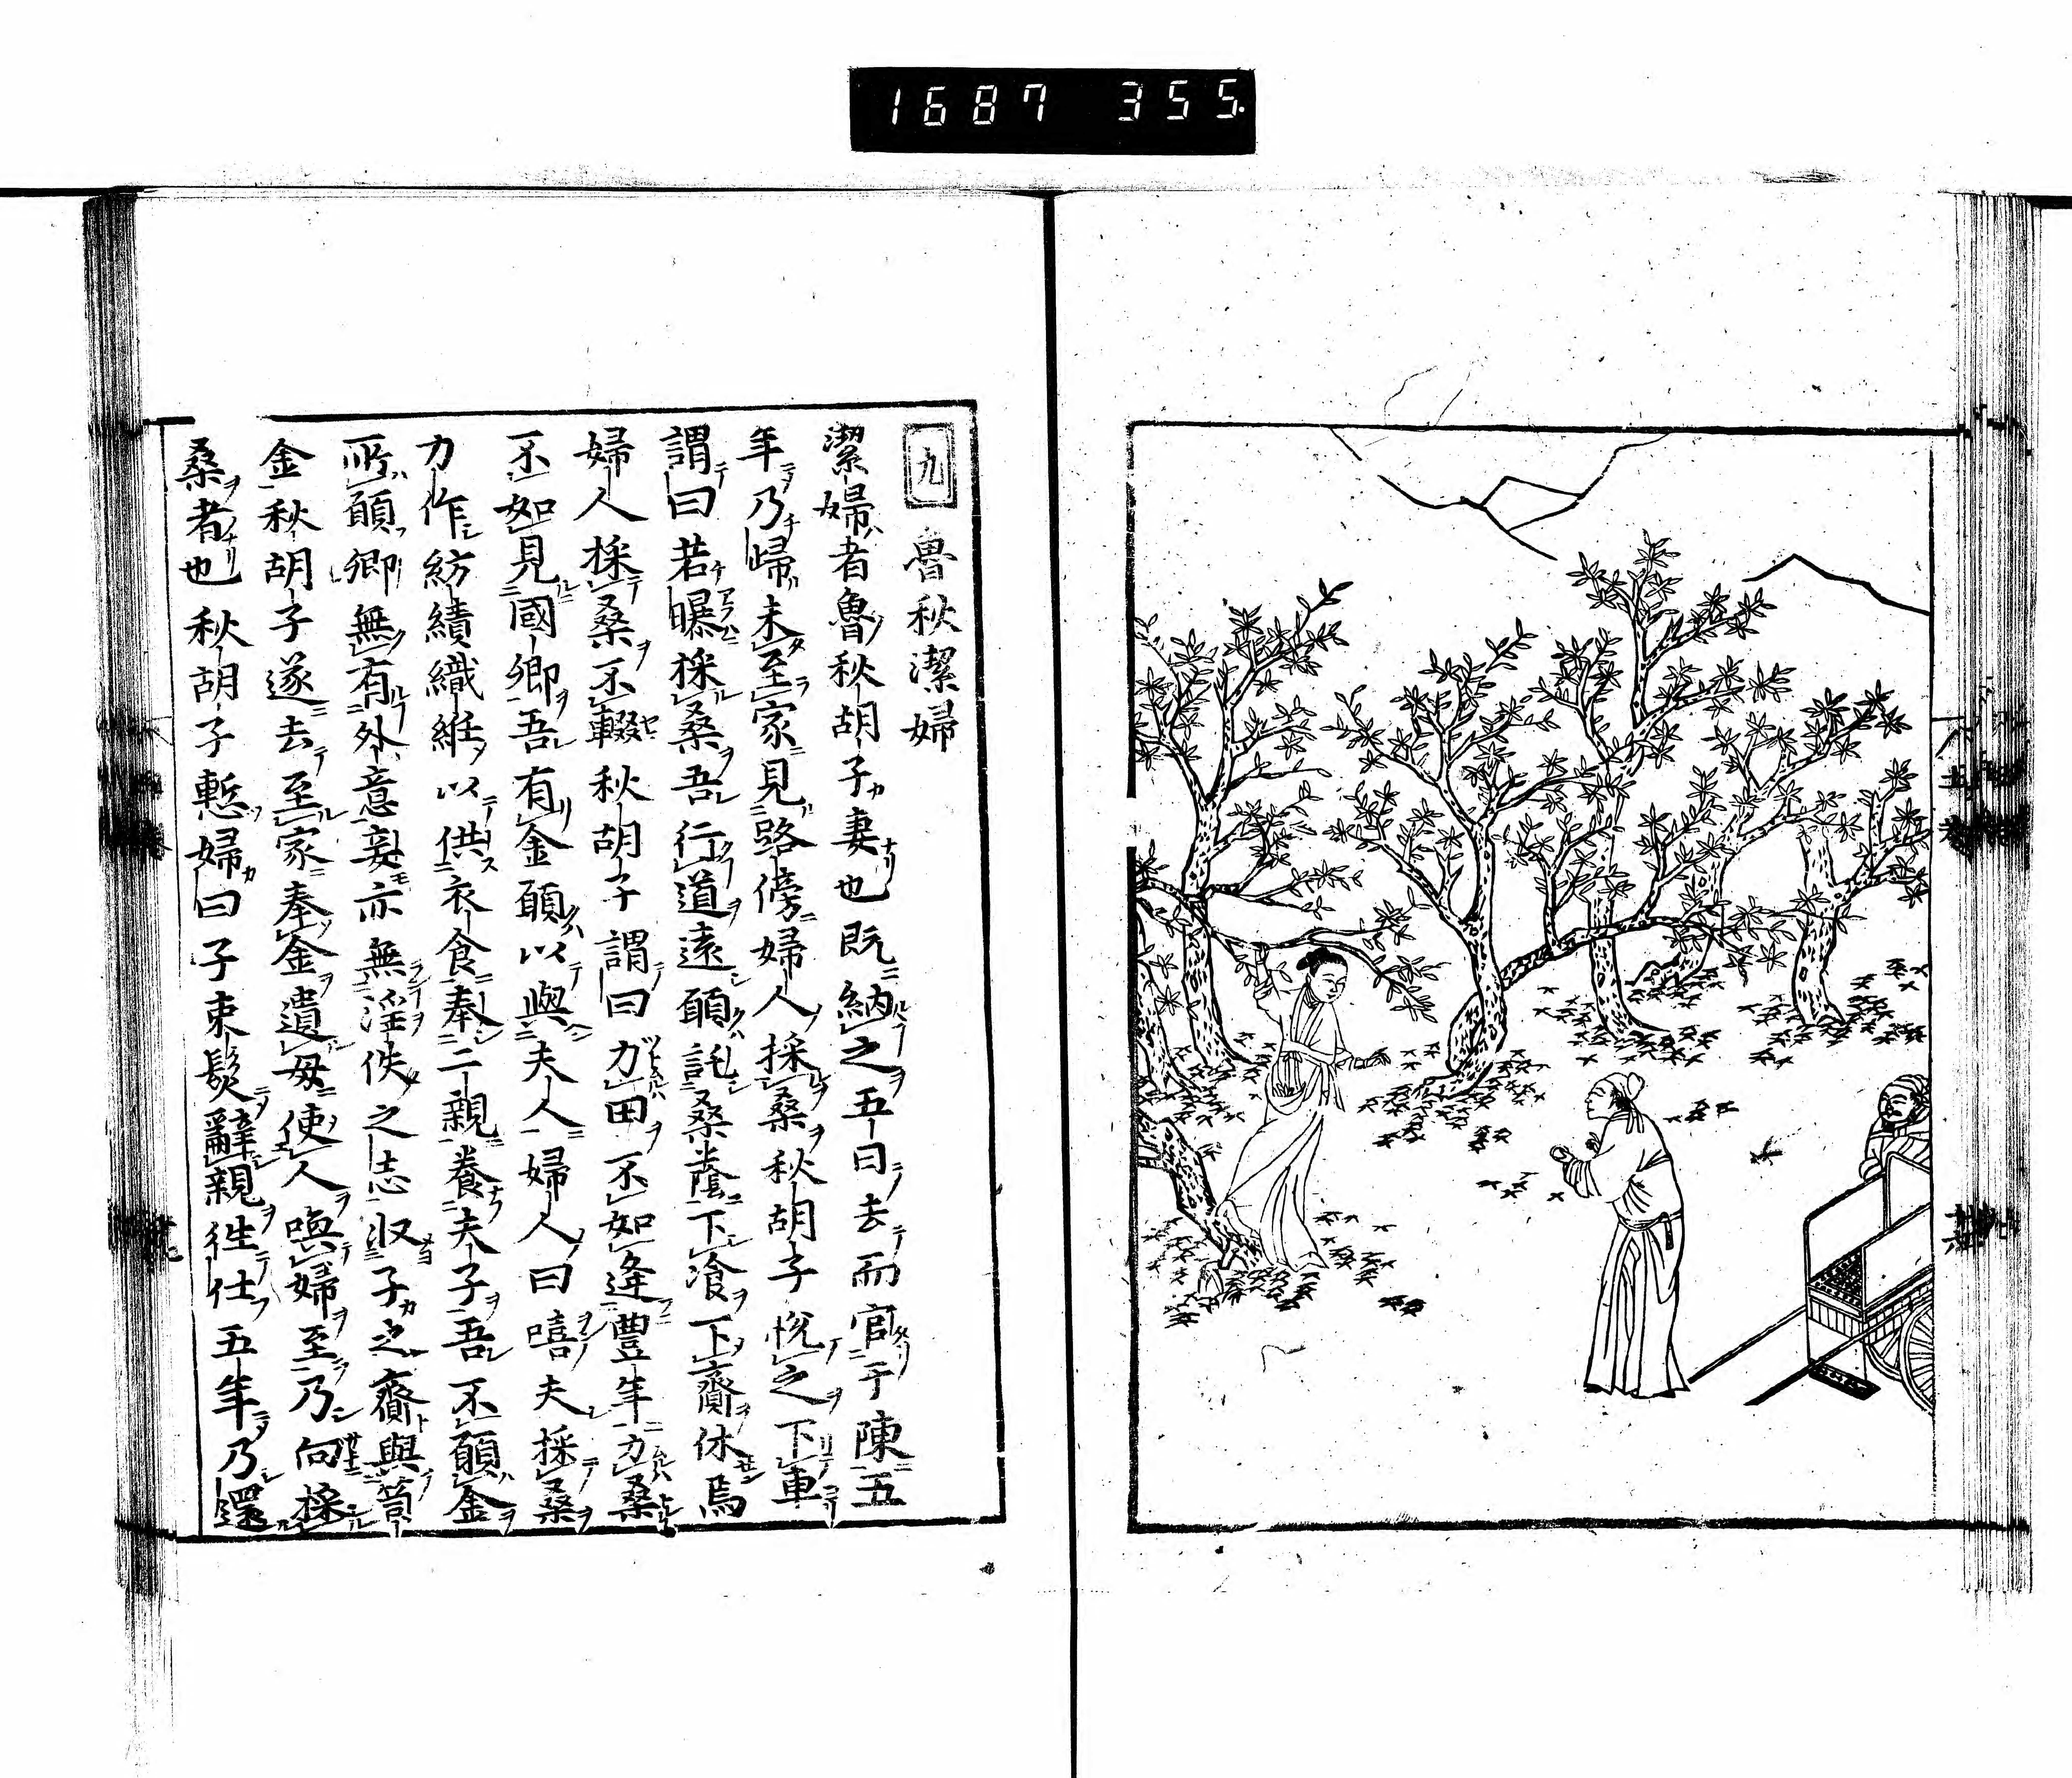 1687 355.
九 魯秋潔婦
潔婦者魯秋胡子妻也既納之五日去而官于陳五
年乃歸未至家見路傍婦人採桑秋胡子悅之下車
謂曰若曝採桑吾行道遠願託桑蔭下飡下齎休焉
婦人採桑不輟秋胡子謂曰力田不如逢豐年力桑
不如見國卿吾有金願以與夫人婦人曰嘻夫採桑
力作紡績織紝以供衣食奉二親養夫子吾不願金
所願卿無有外意妾亦無淫佚之志収子之齎與笥
金秋胡子遂去至家奉金遺母使人喚婦至乃向採
桑者也秋胡子慙婦曰子束髮辭親往仕五年乃還